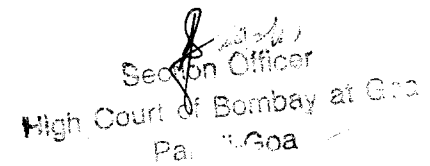 Section Officer
High Court of Bombay at Goa